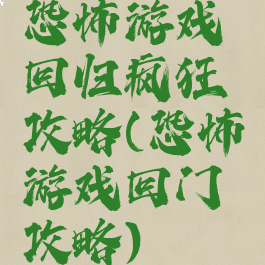 恐怖游戏
回归疯狂
攻略(恐怖
游戏回门
攻略)